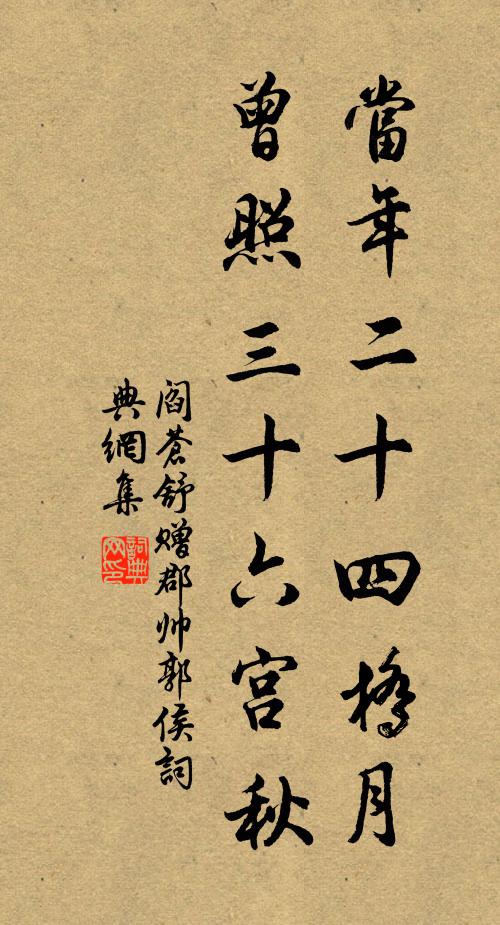 當年二十四橋月
曾照三十六宮秋
閻蒼舒赠郡帅郭侯詞
典網集
詞典
网印